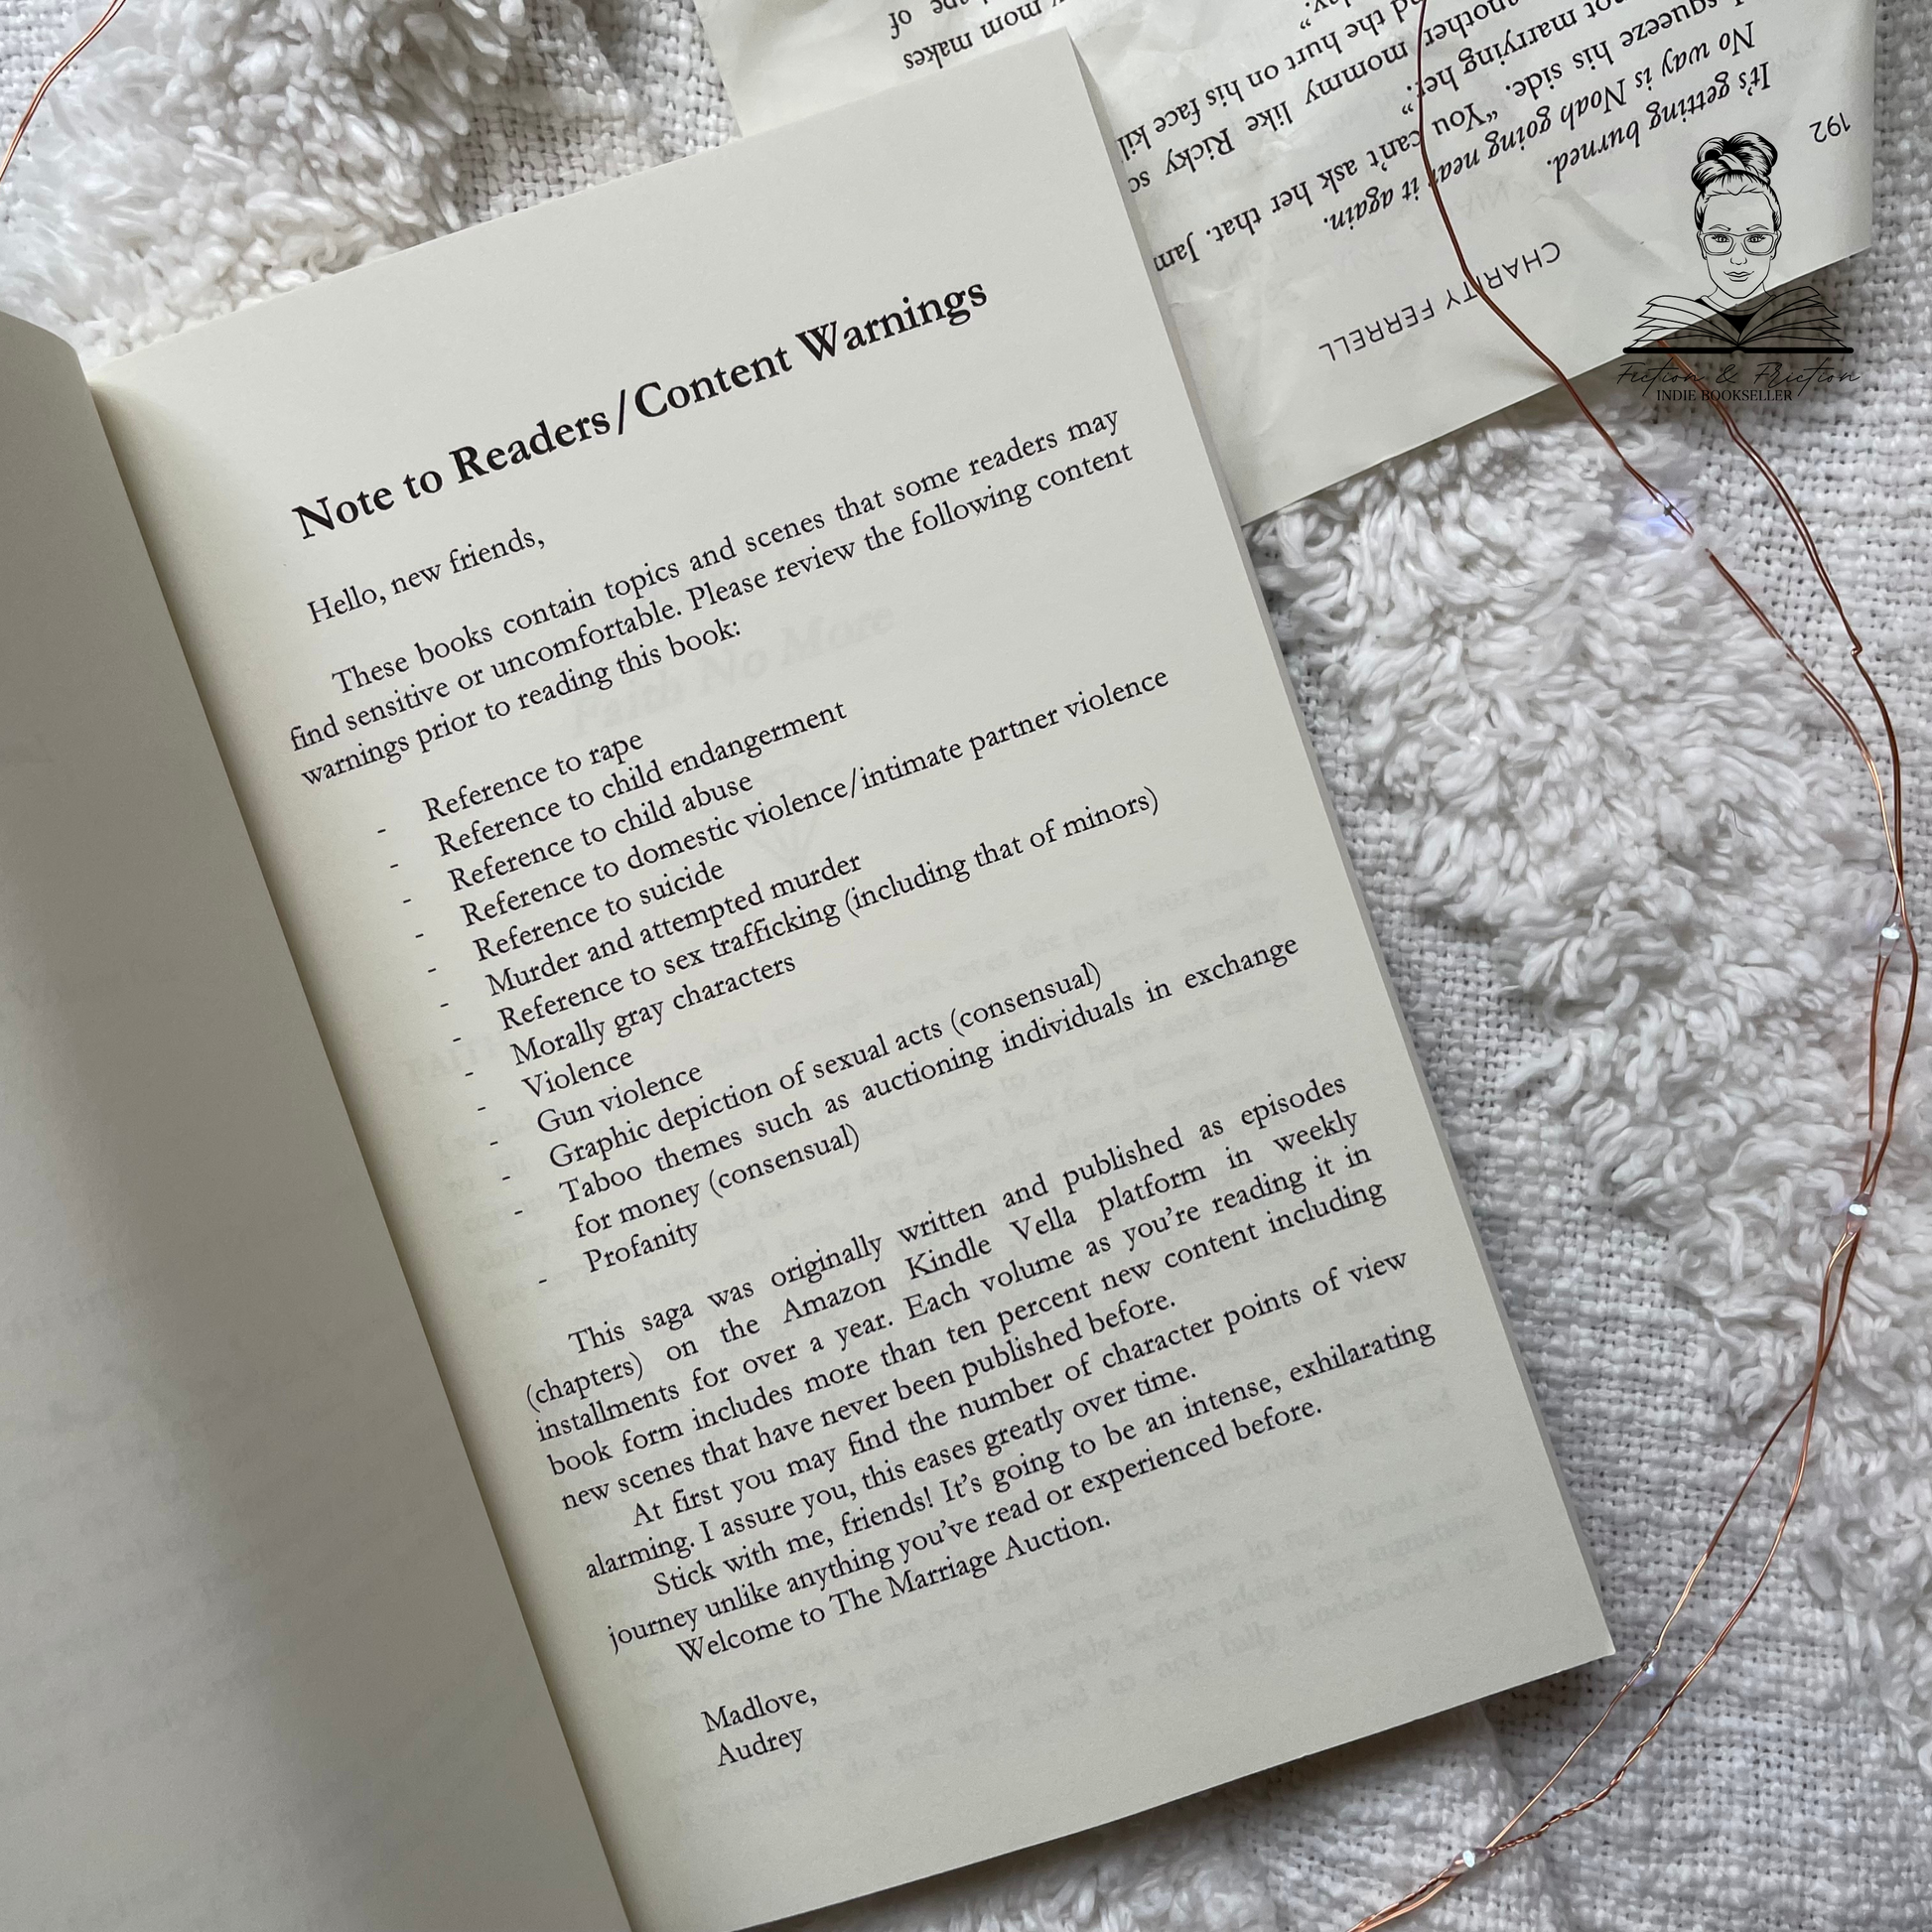 Note to Readers/Content Warnings
Hello, new friends,
These books contain topics and scenes that some readers may
find sensitive or uncomfortable. Please review the following content
warnings prior to reading this book:
- Reference to rape
- Reference to child endangerment
- Reference to child abuse
- Reference to domestic violence/intimate partner violence
- Reference to suicide
- Murder and attempted murder
- Reference to sex trafficking (including that of minors)
- Morally gray characters
- Violence
- Gun violence
- Graphic depiction of sexual acts (consensual)
- Taboo themes such as auctioning individuals in exchange
for money (consensual)
- Profanity
This saga was originally written and published as episodes
(chapters) on the Amazon Kindle Vella platform in weekly
installments for over a year. Each volume as you're reading it in
book form includes more than ten percent new content including
new scenes that have never been published before.
At first you may find the number of character points of view
alarming. I assure you, this eases greatly over time.
Stick with me, friends! It's going to be an intense, exhilarating
journey unlike anything you've read or experienced before.
Welcome to The Marriage Auction.
Madlove,
Audrey
192
CHARITY FERRELL
It's getting burned.
No way is Noah going near it again.
squeeze his side. "You can't ask her that.
not marrying her."
another mommy like Ricky
the hurt on his face
mom makes
of
Fiction & Friction
INDIE BOOKSELLER
Faith No More